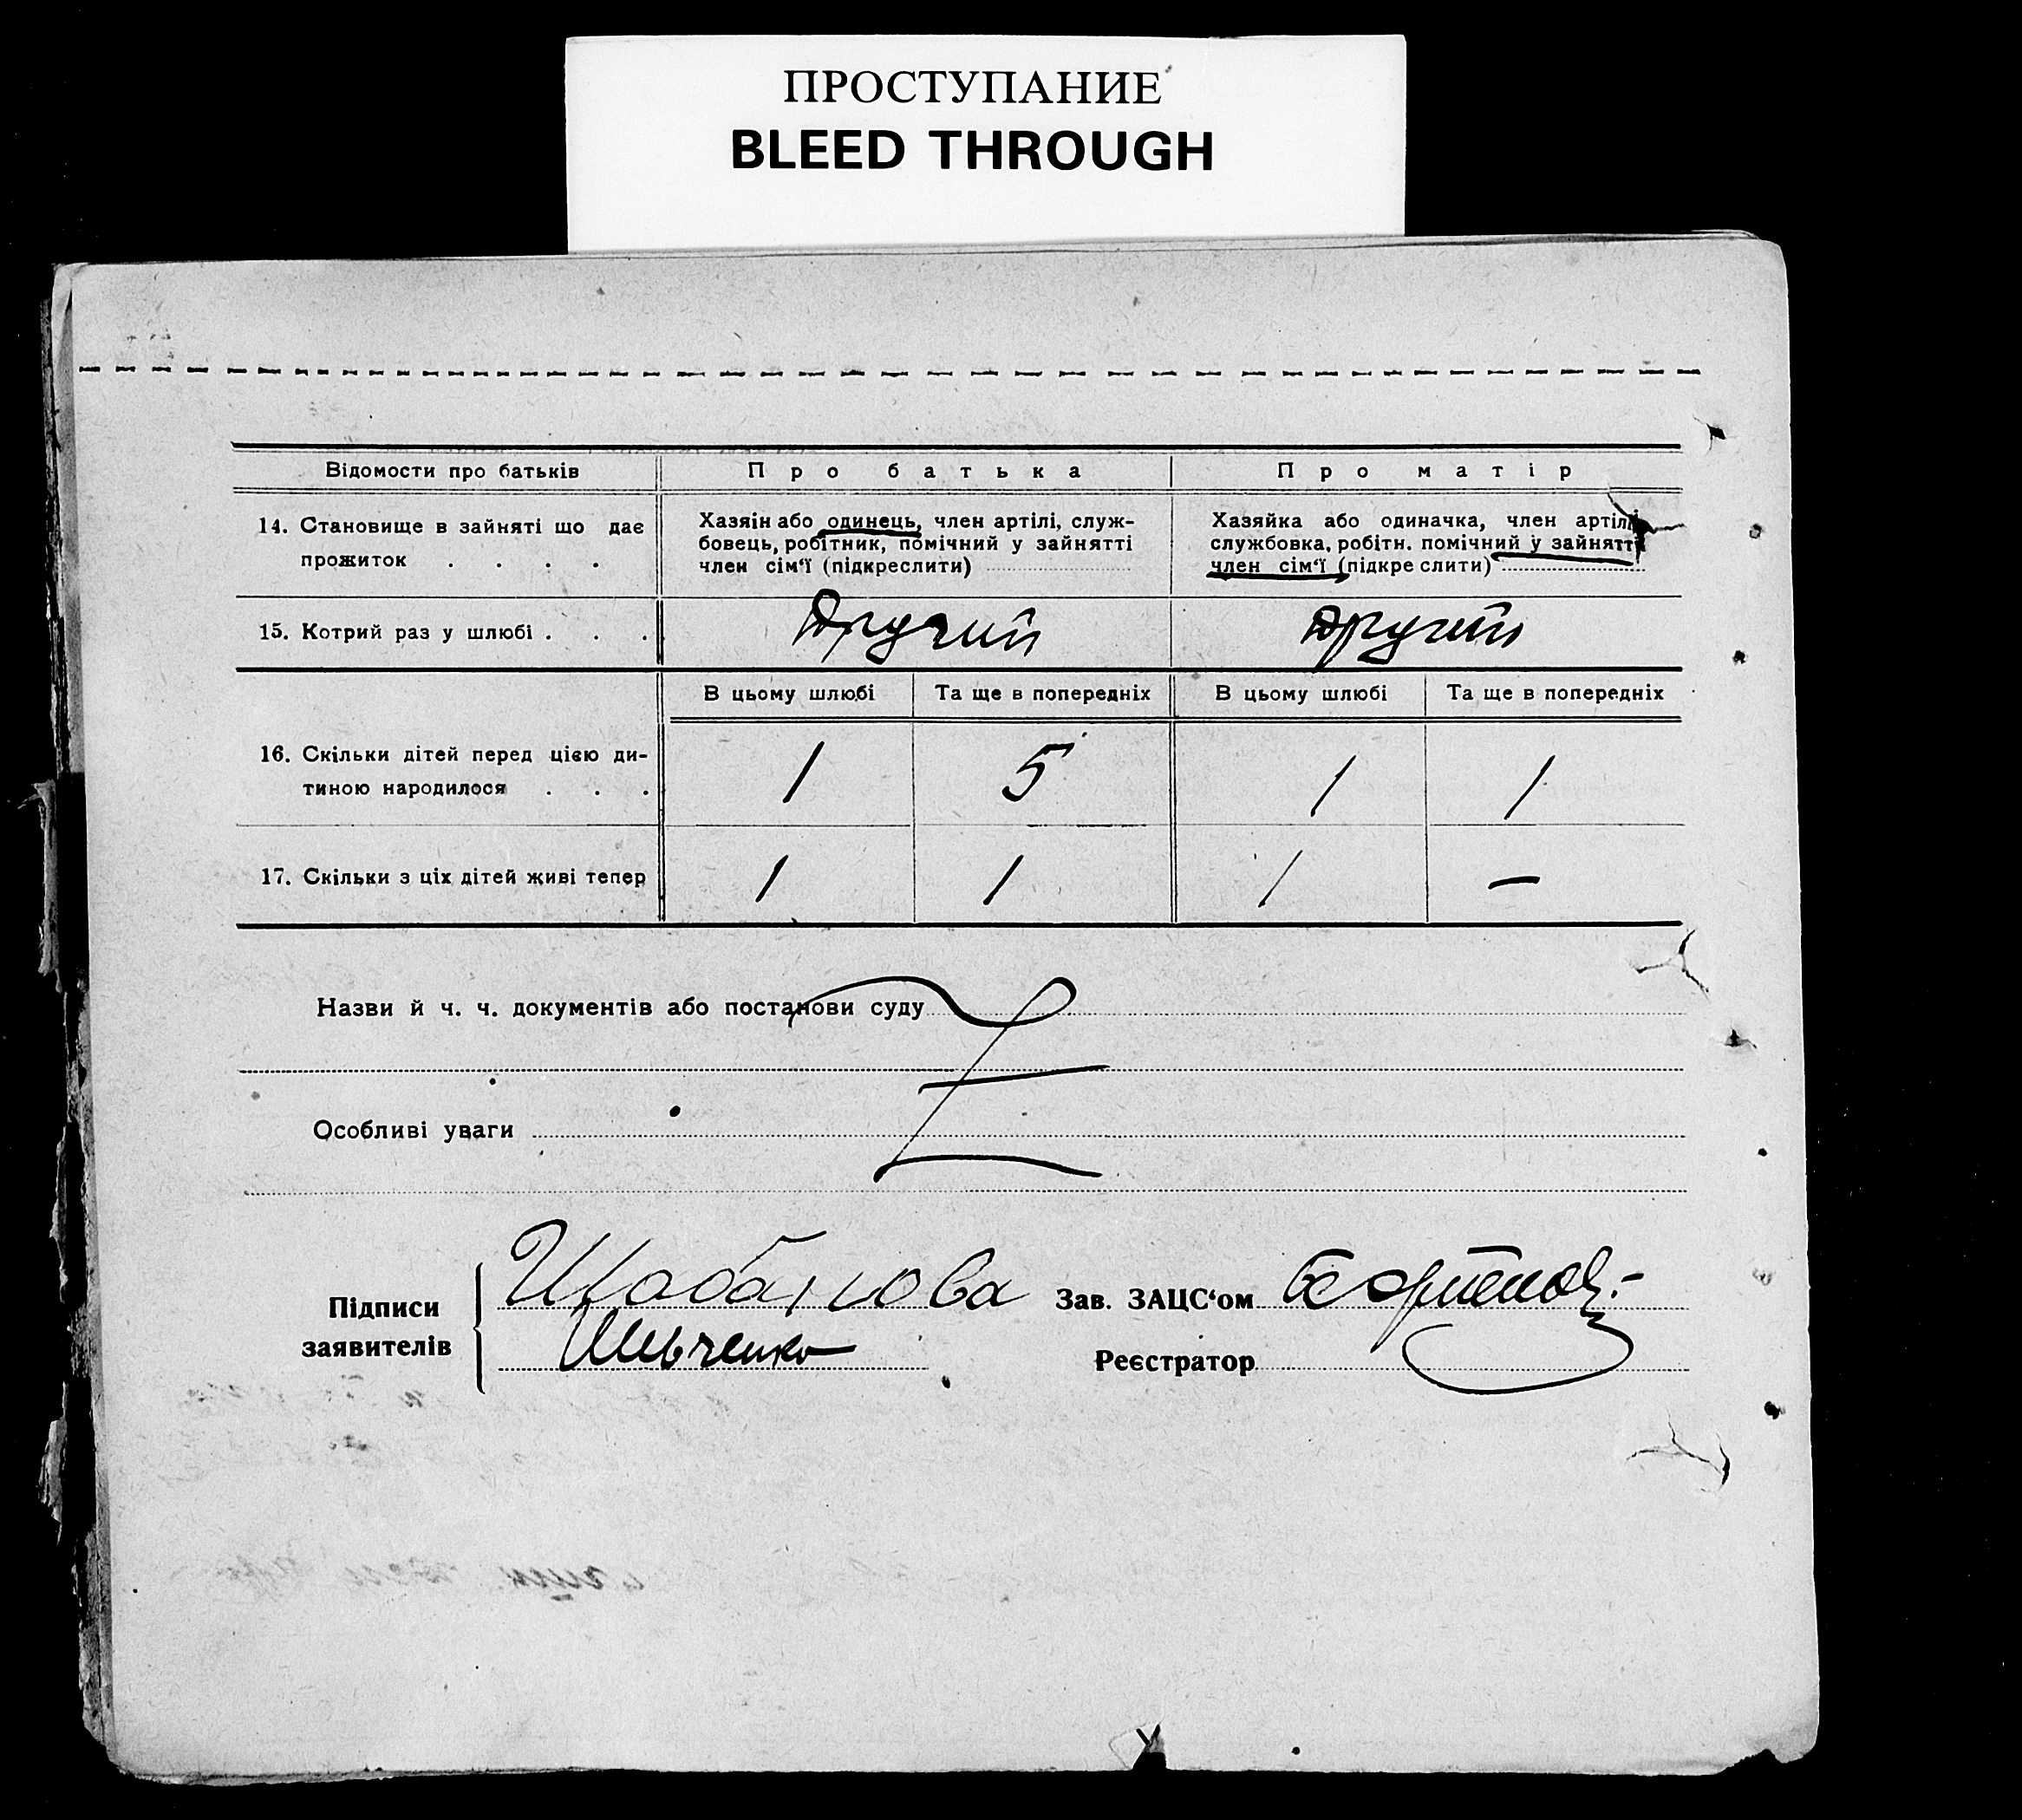 ПРОСТУПАНИЕ
BLEED THROUGH
Відомости про батьків
Про батька
Про матір
14. Становище в зайняті що дає
прожиток . . . .
Хазяїн або одинець, член артілі, служ-
бовець, робітник, помічний у зайнятті
член сім‘ї (підкреслити)
Хазяйка або одиначка, член артілі
службовка, робітн. помічний у зайнятті
член сім‘ї (підкре слити)
15. Котрий раз у шлюбі . . .
Другий
другий
В цьому шлюбі
Та ще в попередніх
В цьому шлюбі
Та ще в попередніх
16. Скільки дітей перед цією ди-
тиною народилося . . .
1
5
1
1
17. Скільки з ціх дітей живі тепер
1
1
1
—
Назви й ч. ч. документів або постанови суду
Особливі уваги
Підписи
заявителів
Шабанова
Шевченко
Зав. ЗАЦС‘ом
Реєстратор